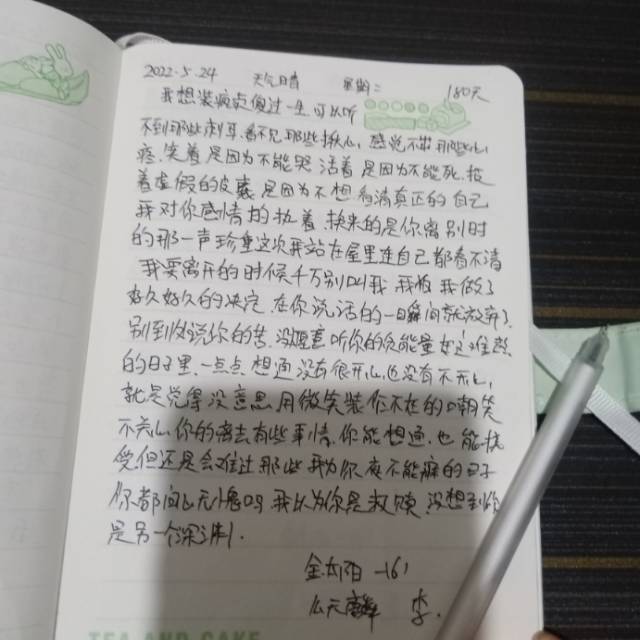 2022.5.24 天气晴 星期二 180天
我想装疯卖傻过一生,可以听
不到那些刺耳,看不见那些揪心,感觉不出那些心
疼,笑着是因为不能哭,活着是因为不能死,披
着虚假的皮囊,是因为不想看清真正的自己
我对你感情的执着,换来的是你离别时
的那一声珍重这次我站在屋里连自己都看不清
我要离开的时候千万别叫我,我怕我做了
好久好久的决定,在你说话的一瞬间就放弃了.
别到处说你的苦,没愿意听你的负能量
的日子里,一点点想通没有很开心,也没有不开心,
就是觉得没意思,用微笑装你不在的嘲笑
不关心你的离去有些事情,你能想通,也能接
受但还是会难过那些我为你夜不能寐的日子
你都问心无愧吗,我以为你是救赎,没想到你
是另一个深渊!
李.
TEA AND CAKE